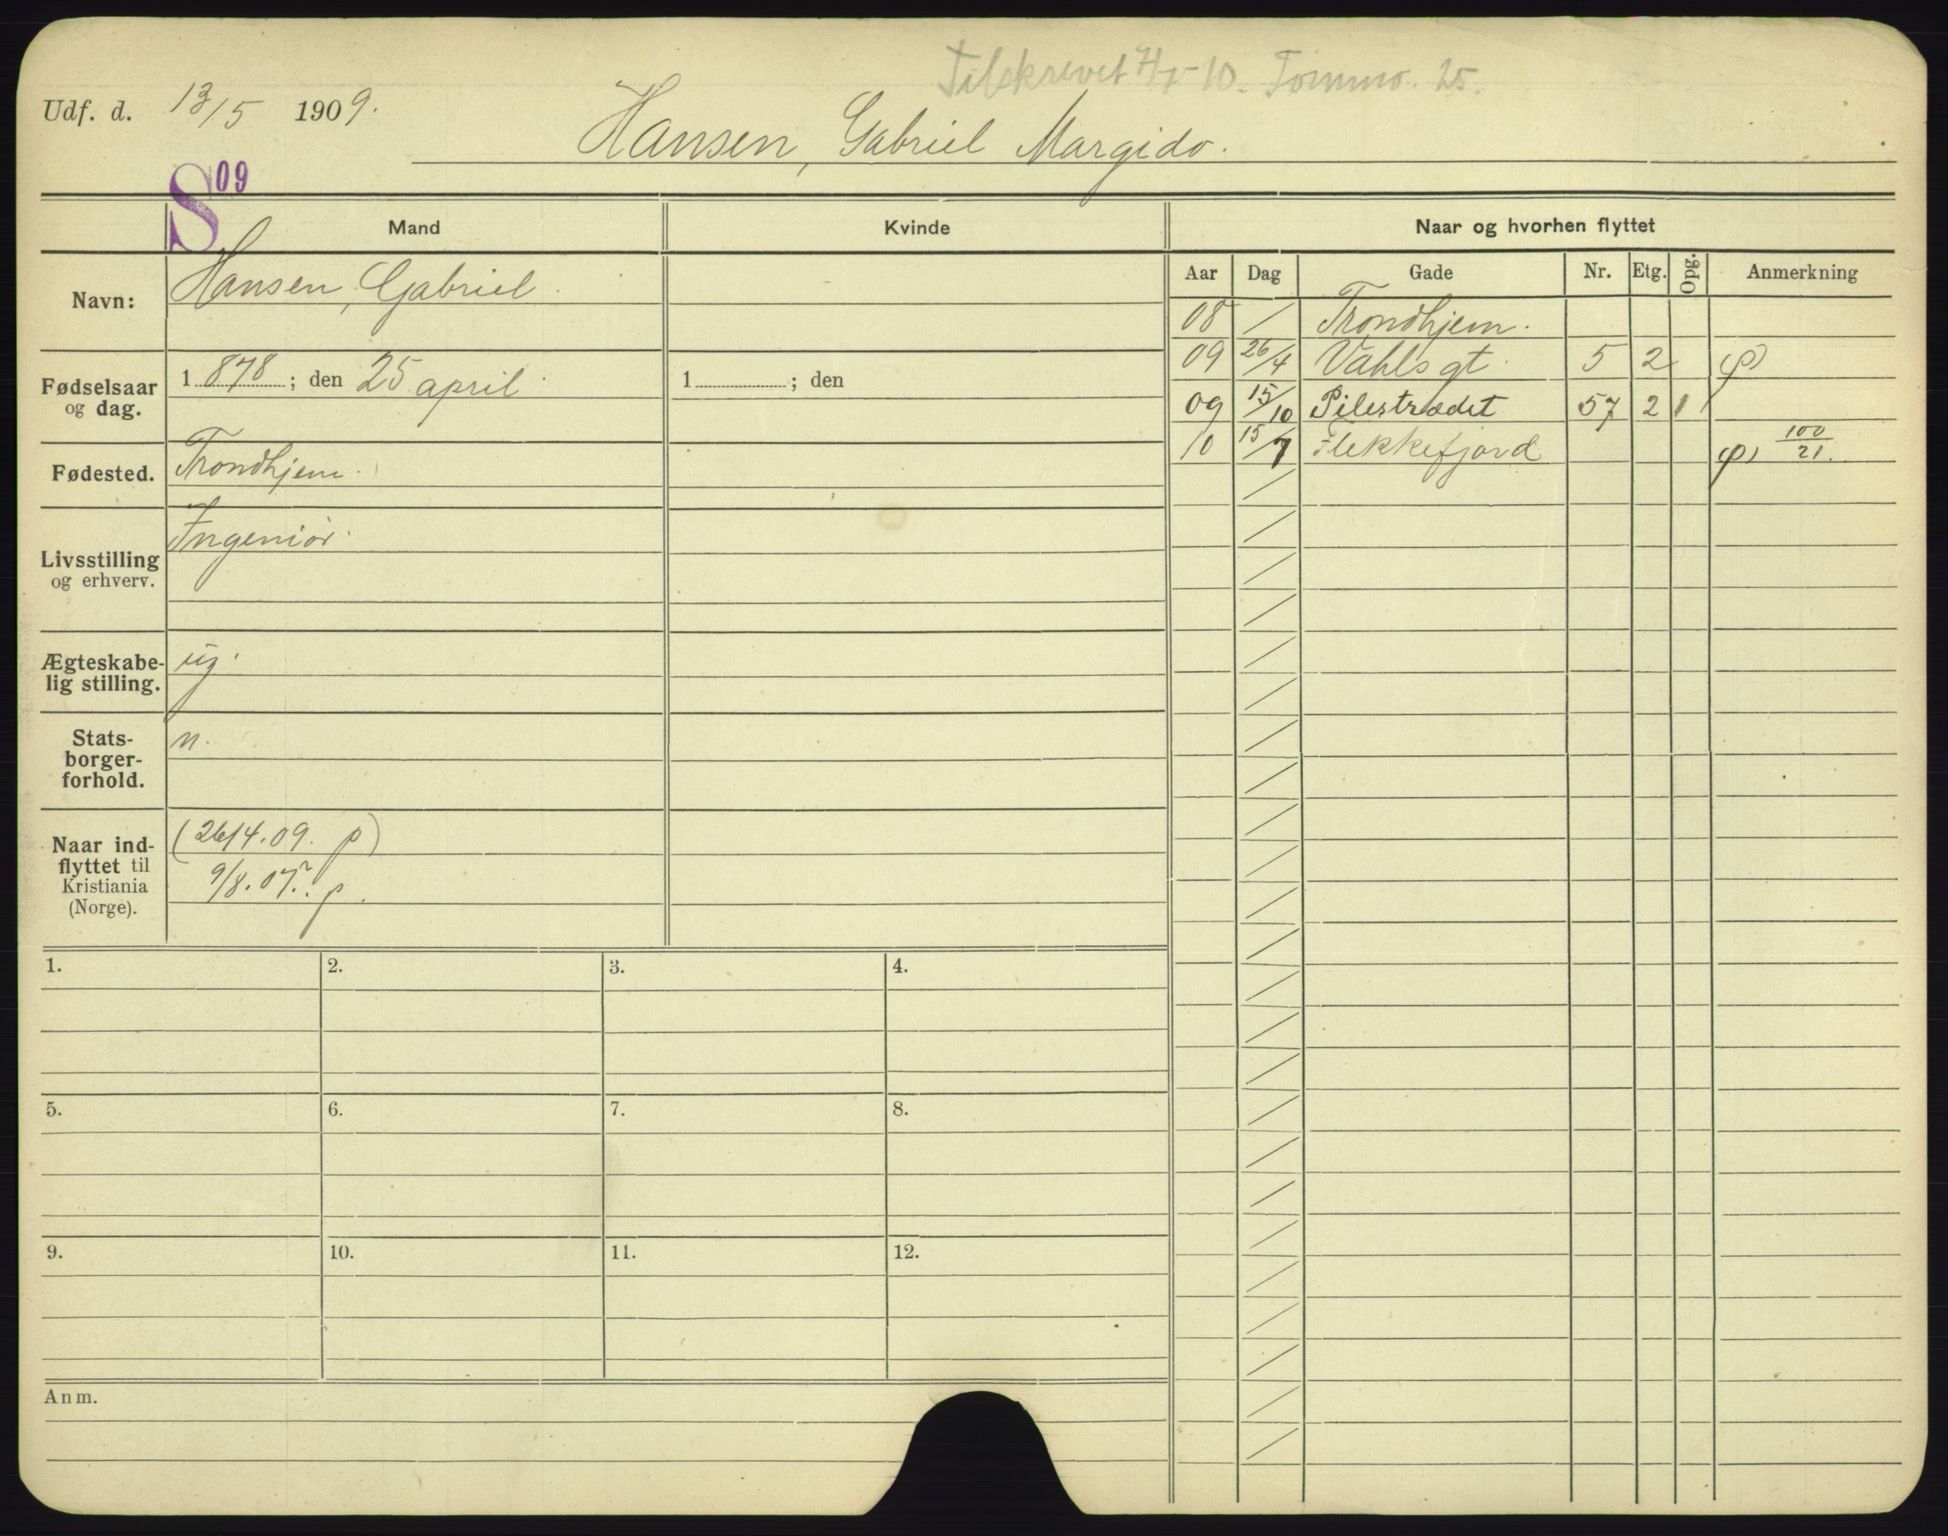 Tilskrevet 4/7-10. Tomtno. 25.
Udf. d. 13/5 1909.
Hansen, Gabriel Margido.
S 09
Mand
Kvinde
Naar og hvorhen flyttet
Navn: Hansen, Gabriel
Fødselsaar og dag. 1 878 ; den 25 april
1 ; den
Fødested. Trondhjem.
Livsstilling og erhverv. Ingeniør.
Ægteskabe-
lig stilling. ug.
Stats-
borger-
forhold. n.
Naar ind-
flyttet til
Kristiania
(Norge).
(26/4.09. p)
9/8.07. p.
Aar Dag Gade Nr. Etg. Opg. Anmerkning
08 / Trondhjem.
09 26/4 Vahls gt 5 2 φ)
09 15/10 Pilestrædet 57 2 1
10 15/7 Flekkefjord φ) 100/21.
1. 2. 3. 4.
5. 6. 7. 8.
9. 10. 11. 12.
Anm.